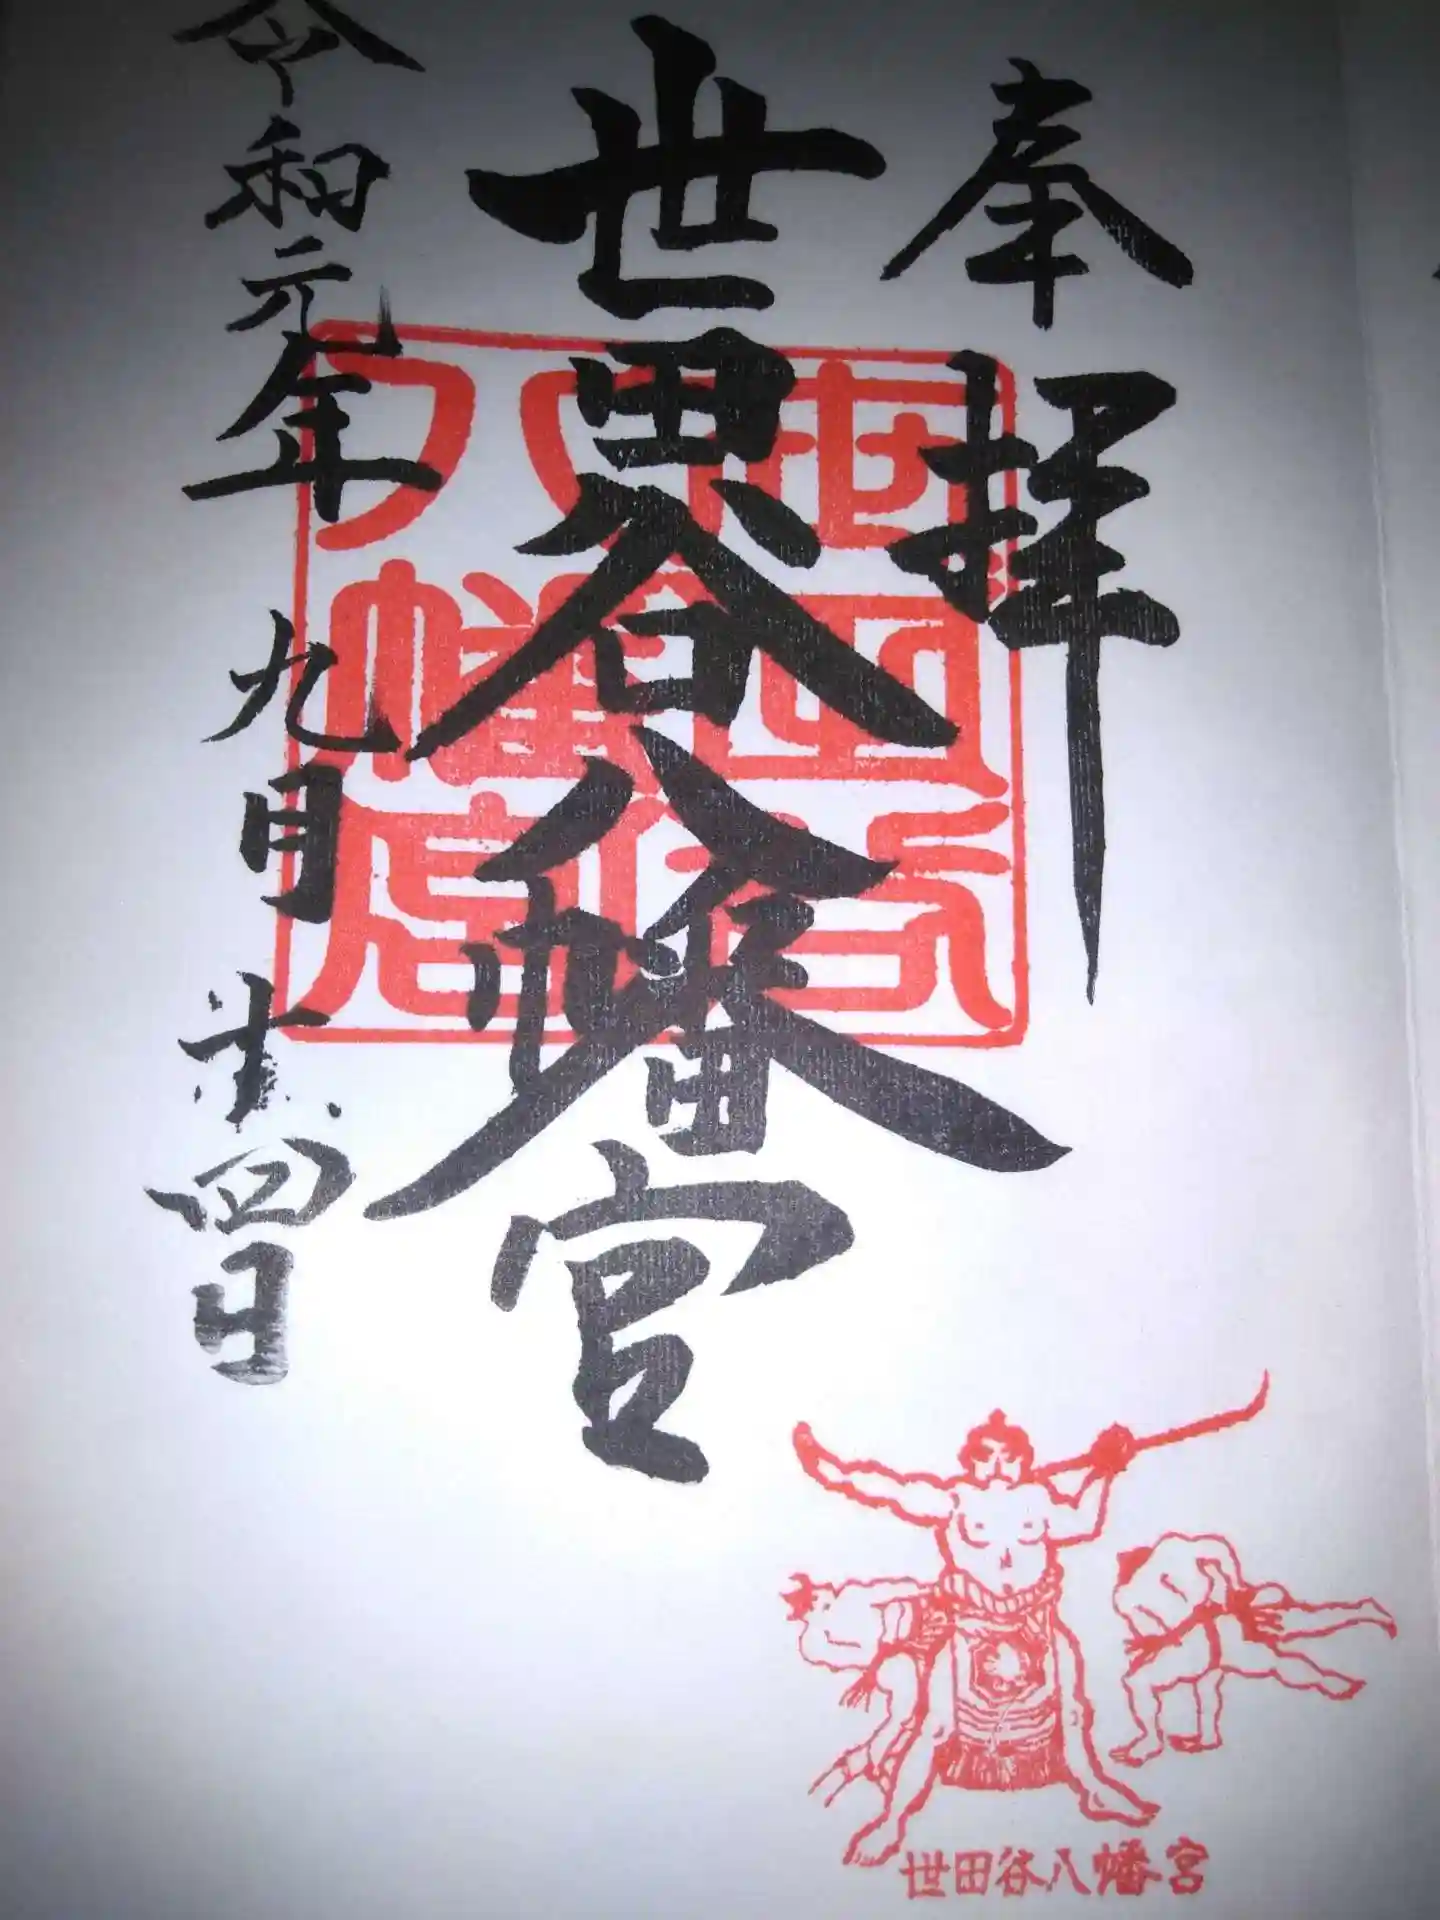 奉拝
世田谷八幡宮
令和元年九月 四日
世田谷
八幡宮
世田谷八幡宮